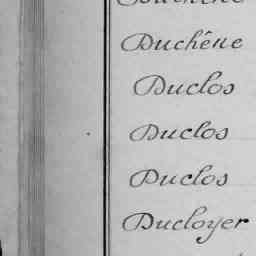 Duchêne
Duclos
Duclos
Duclos
Ducloyer